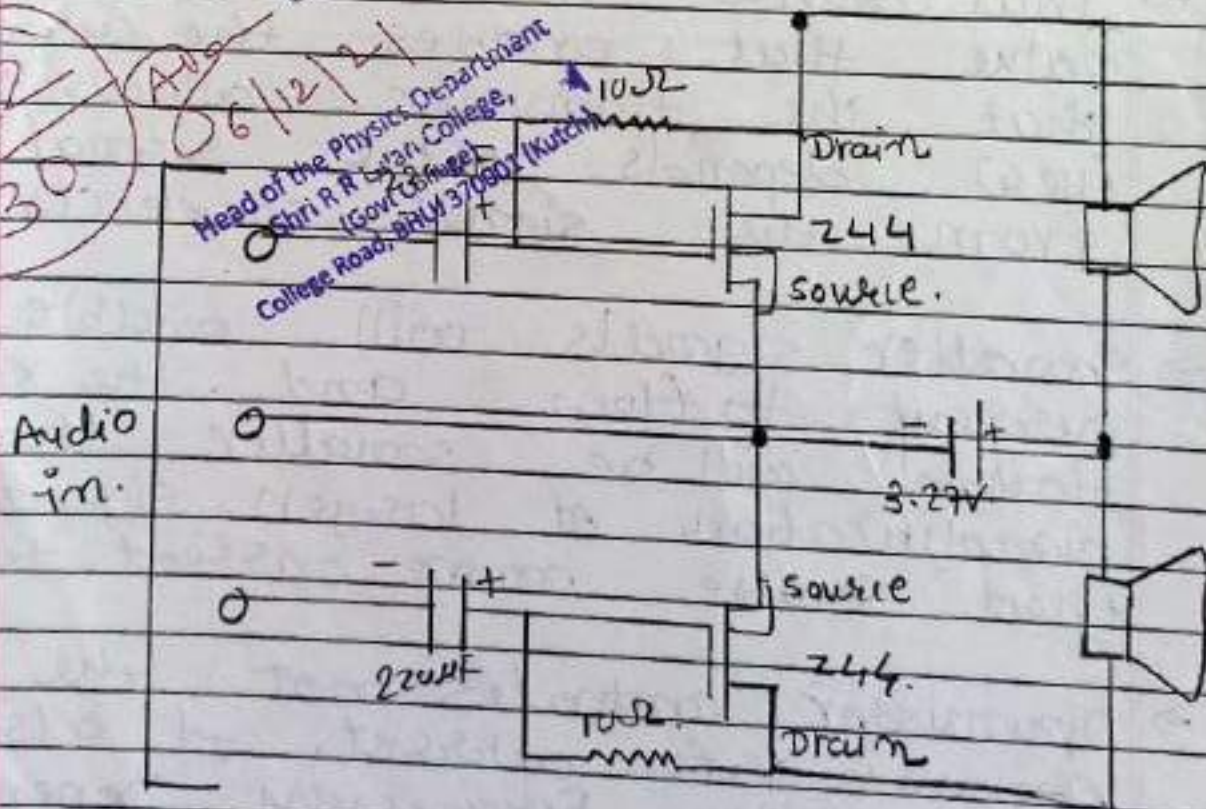 2
30
06/12/21
Head of the Physics Department
Shri R R Lalan College,
(Govt College)
College Road, BHUJ 370001 (Kutch)
10Ω
Drain
+
244
source.
Audio
in.
- +
3.27V
- +
source
220μF
244.
10Ω.
Drain